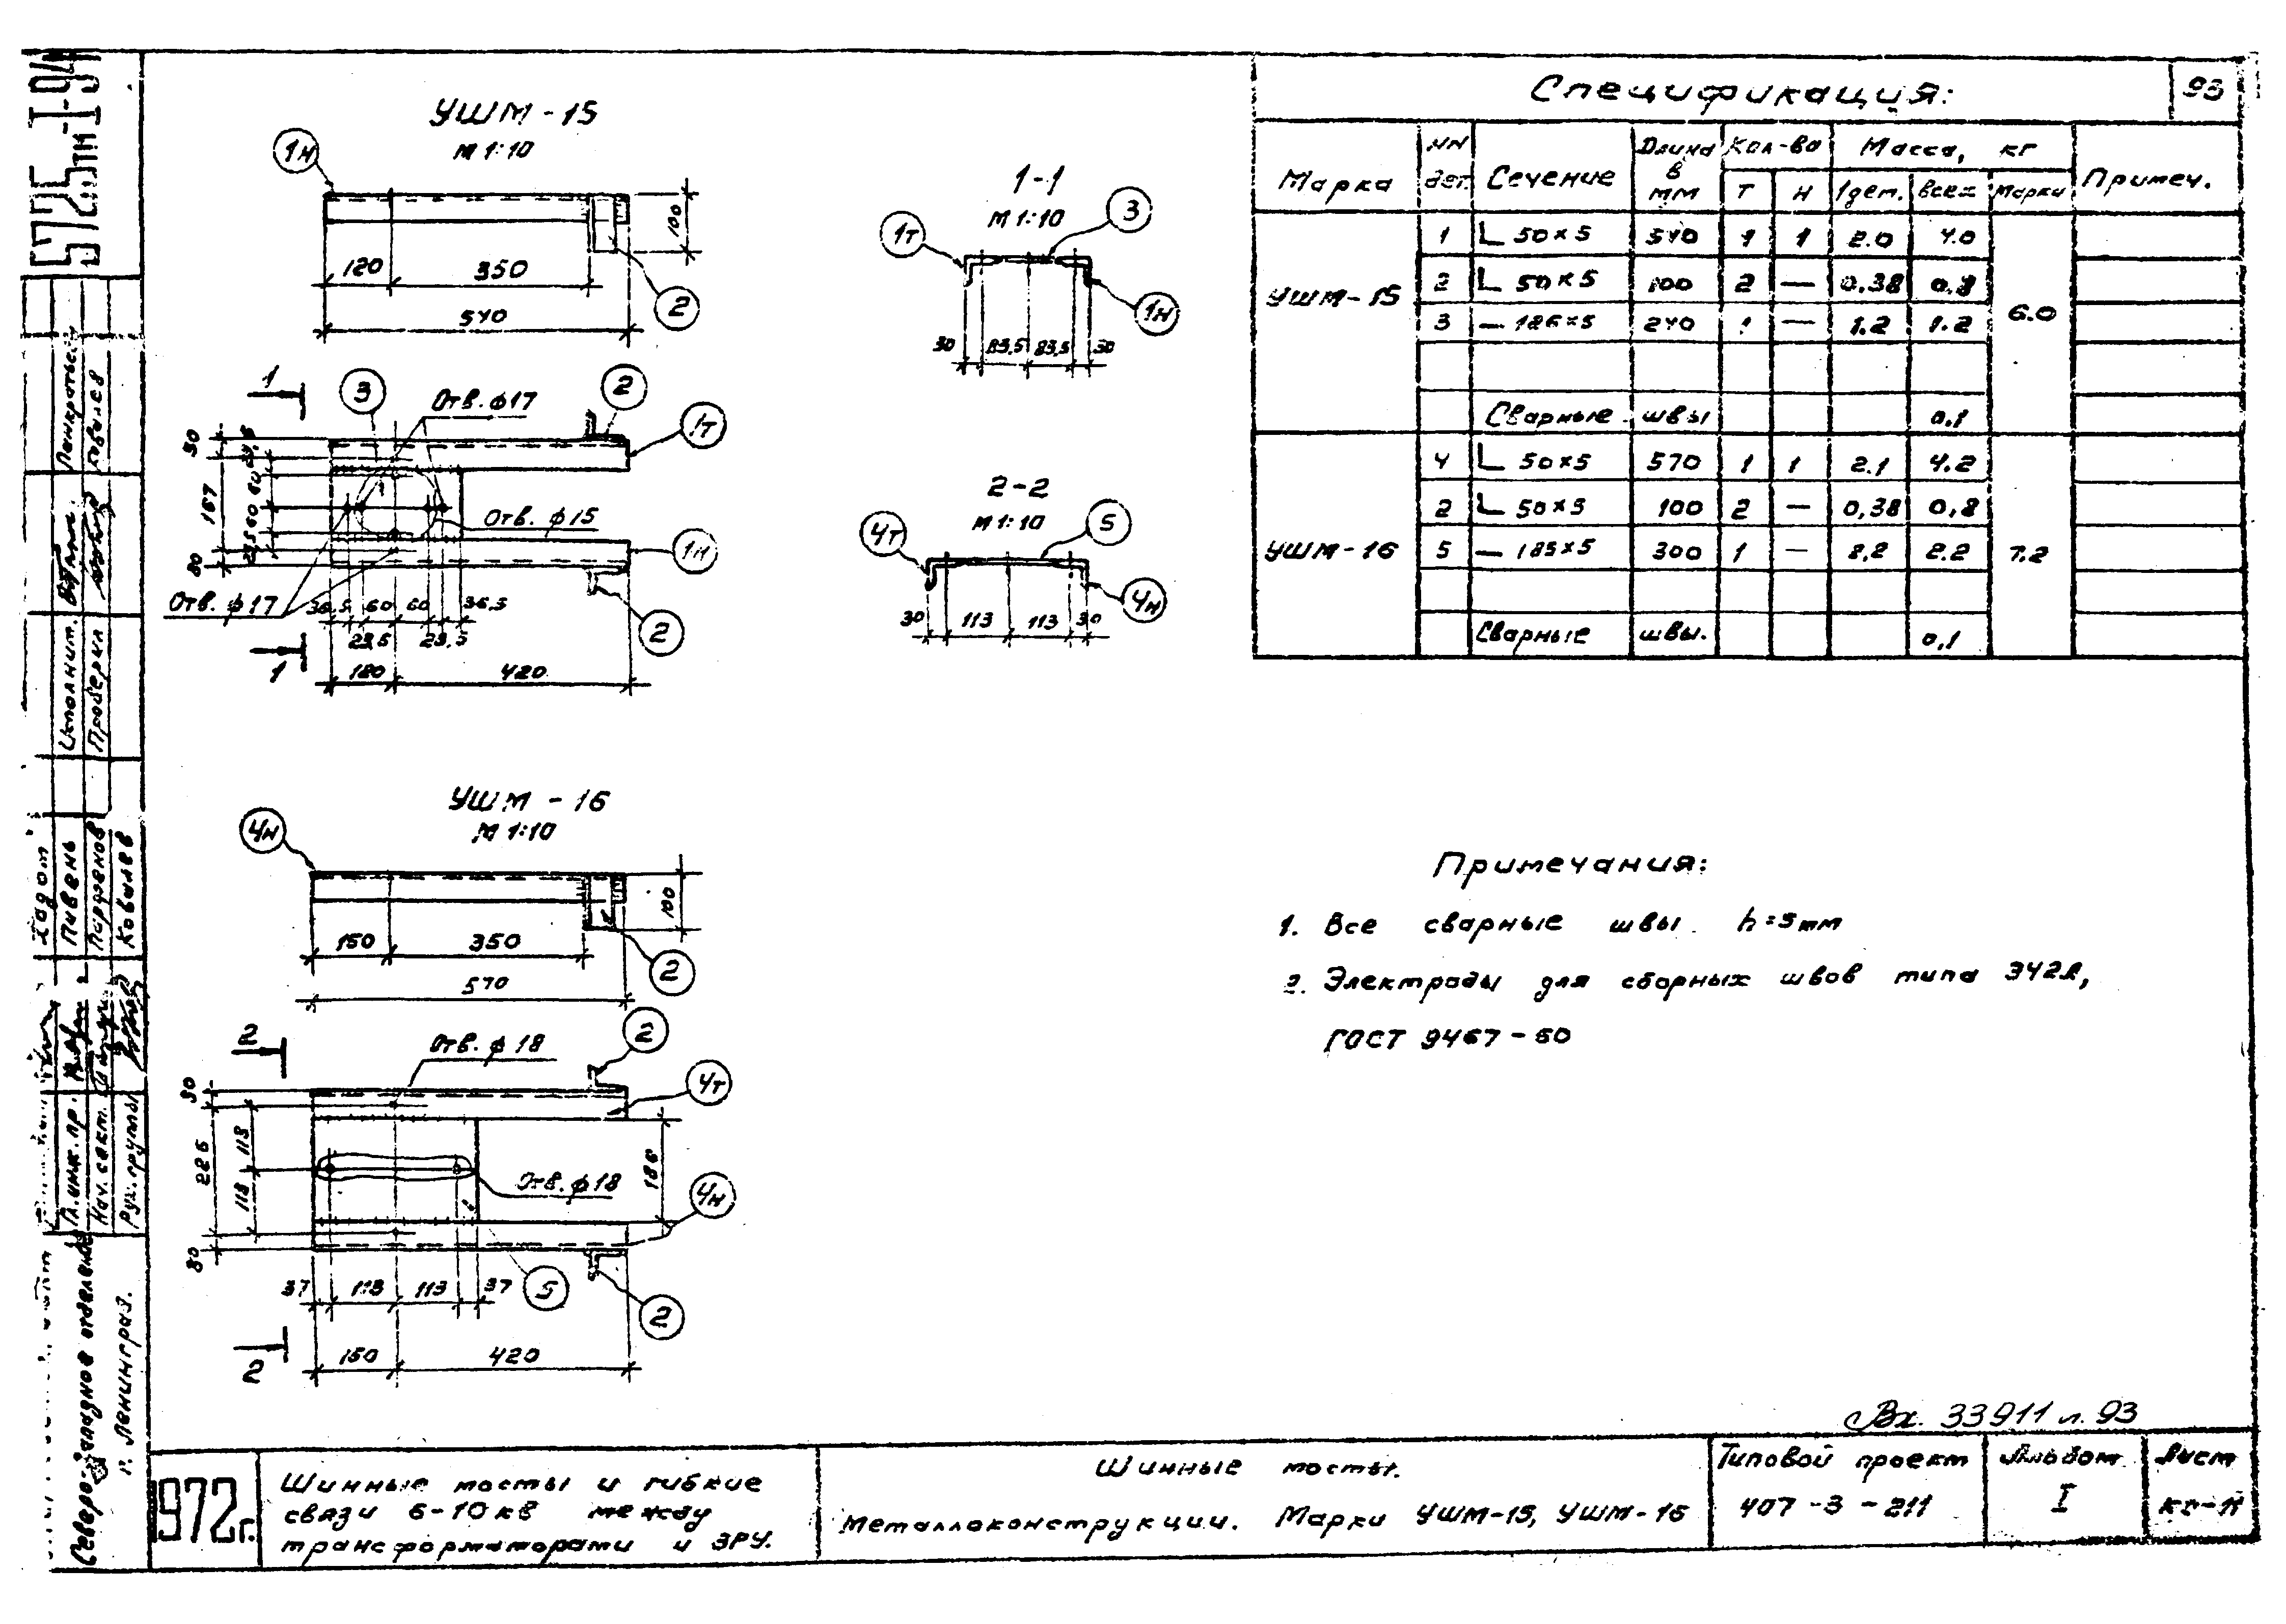 УШМ-15
М 1:10
1н
100
120
350
540
2
1-1
М 1:10
1т
3
1н
30
83,5
83,5
30
1
3
Отв. ф17
2
1т
167
60
60
Отв. ф15
1н
Отв. ф17
36,5
60
60
36,5
23,5
23,5
2
1
120
420
2-2
М 1:10
4т
5
4н
30
113
113
30
УШМ-16
М 1:10
4н
100
150
350
2
570
2
2
Отв. ф 18
4т
30
226
113
113
186
Отв. ф 18
4н
37
113
113
37
5
2
2
150
420
Спецификация:
93
Марка
NN дет.
Сечение
Длина в мм
Кол-во
Масса, кг
Примеч.
Т Н 1дет. Всех Марки
УШМ-15
1 L 50×5 540 1 1 2.0 4.0
2 L 50×5 100 2 — 0,38 0,8
3 — 186×5 240 1 — 1.2 1.2
6.0
Сварные швы 0,1
УШМ-16
4 L 50×5 570 1 1 2.1 4.2
2 L 50×5 100 2 — 0,38 0,8
5 — 185×5 300 1 — 2,2 2.2
7.2
Сварные швы. 0,1
Примечания:
1. Все сварные швы h=5мм
2. Электроды для сборных швов типа Э42А,
ГОСТ 9467-60
Вх. 33911 л. 93
1972г.
Шинные мосты и гибкие
связи 6-10кв между
трансформаторами и ЗРУ.
Шинные мосты.
Металлоконструкции. Марки УШМ-15, УШМ-16
Типовой проект
407-3-211
Альбом
I
Лист
5725тм-I-94
Исполнит.
Проверил
Ковалев
Пивень
Парфенов
Ковалев
Гл.инж.пр.
Нач. сект.
Рук. группы
Северо-Западное отделение
г. Ленинград.